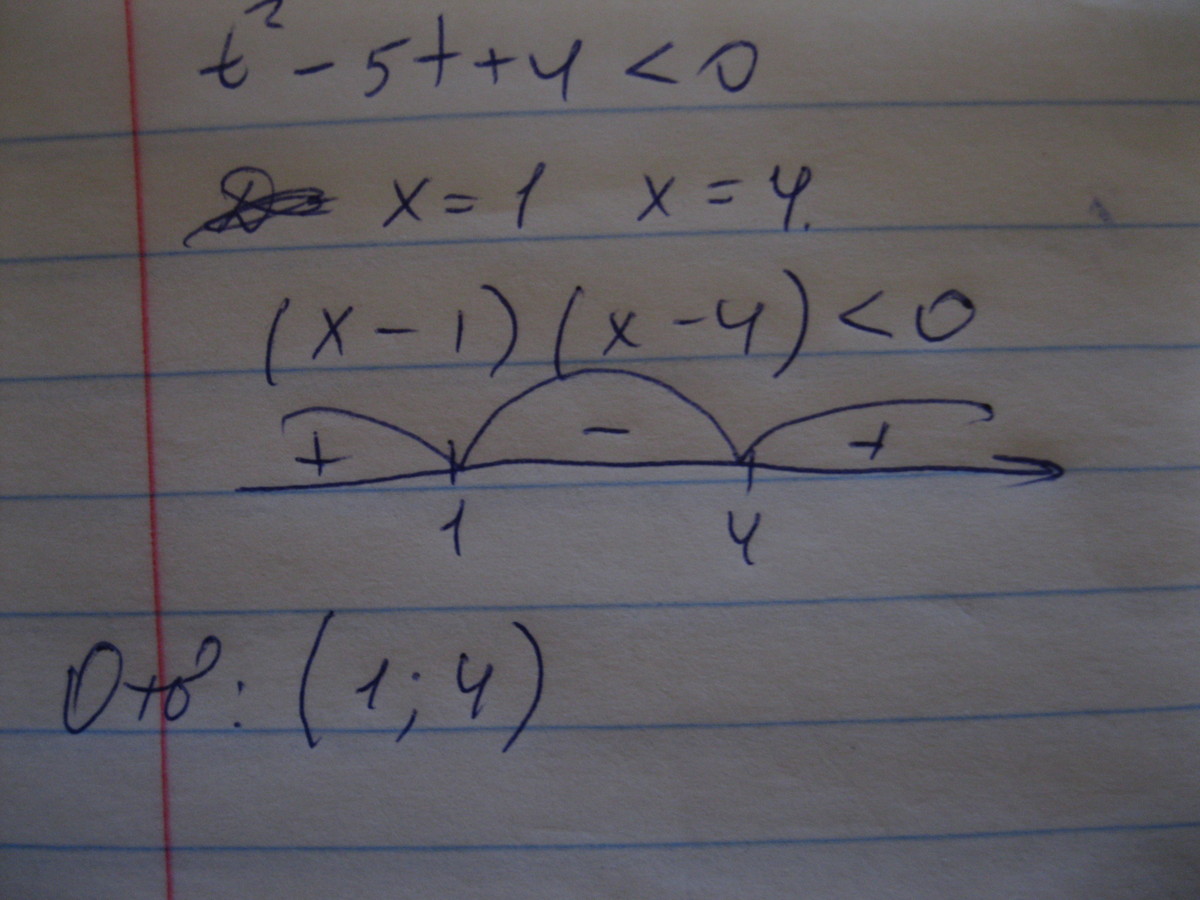 t² - 5t + 4 < 0
x = 1 x = 4.
(x - 1) (x - 4) < 0
+ - +
1 4
Отв: (1; 4)